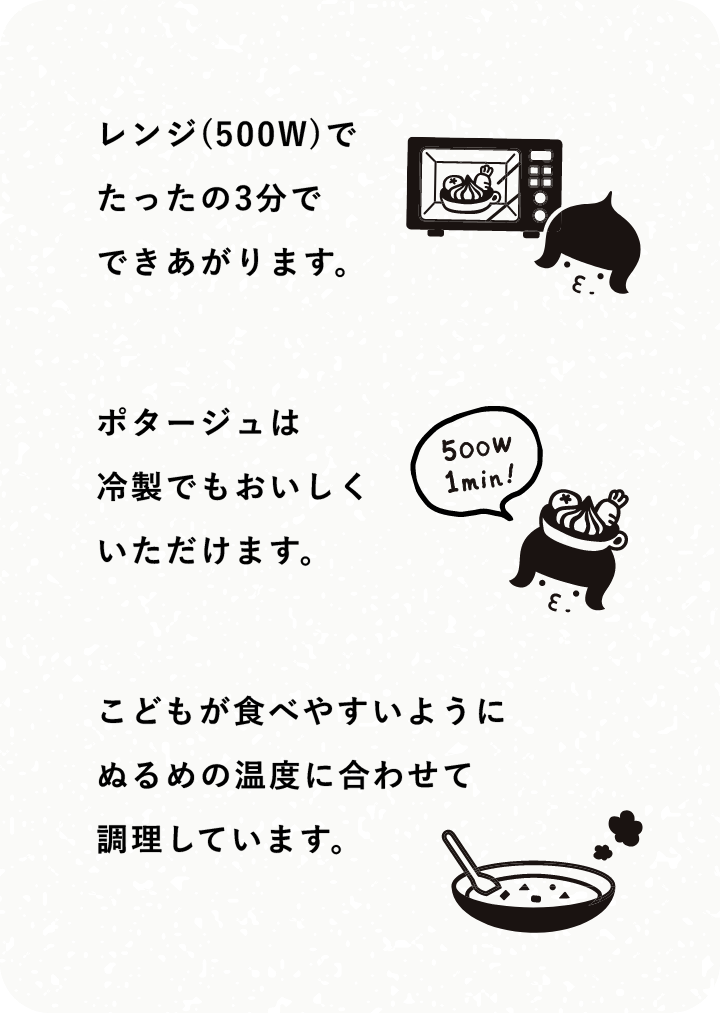 レンジ(500W)で
たったの3分で
できあがります。
ポタージュは
冷製でもおいしく
いただけます。
500W
1min!
こどもが食べやすいように
ぬるめの温度に合わせて
調理しています。